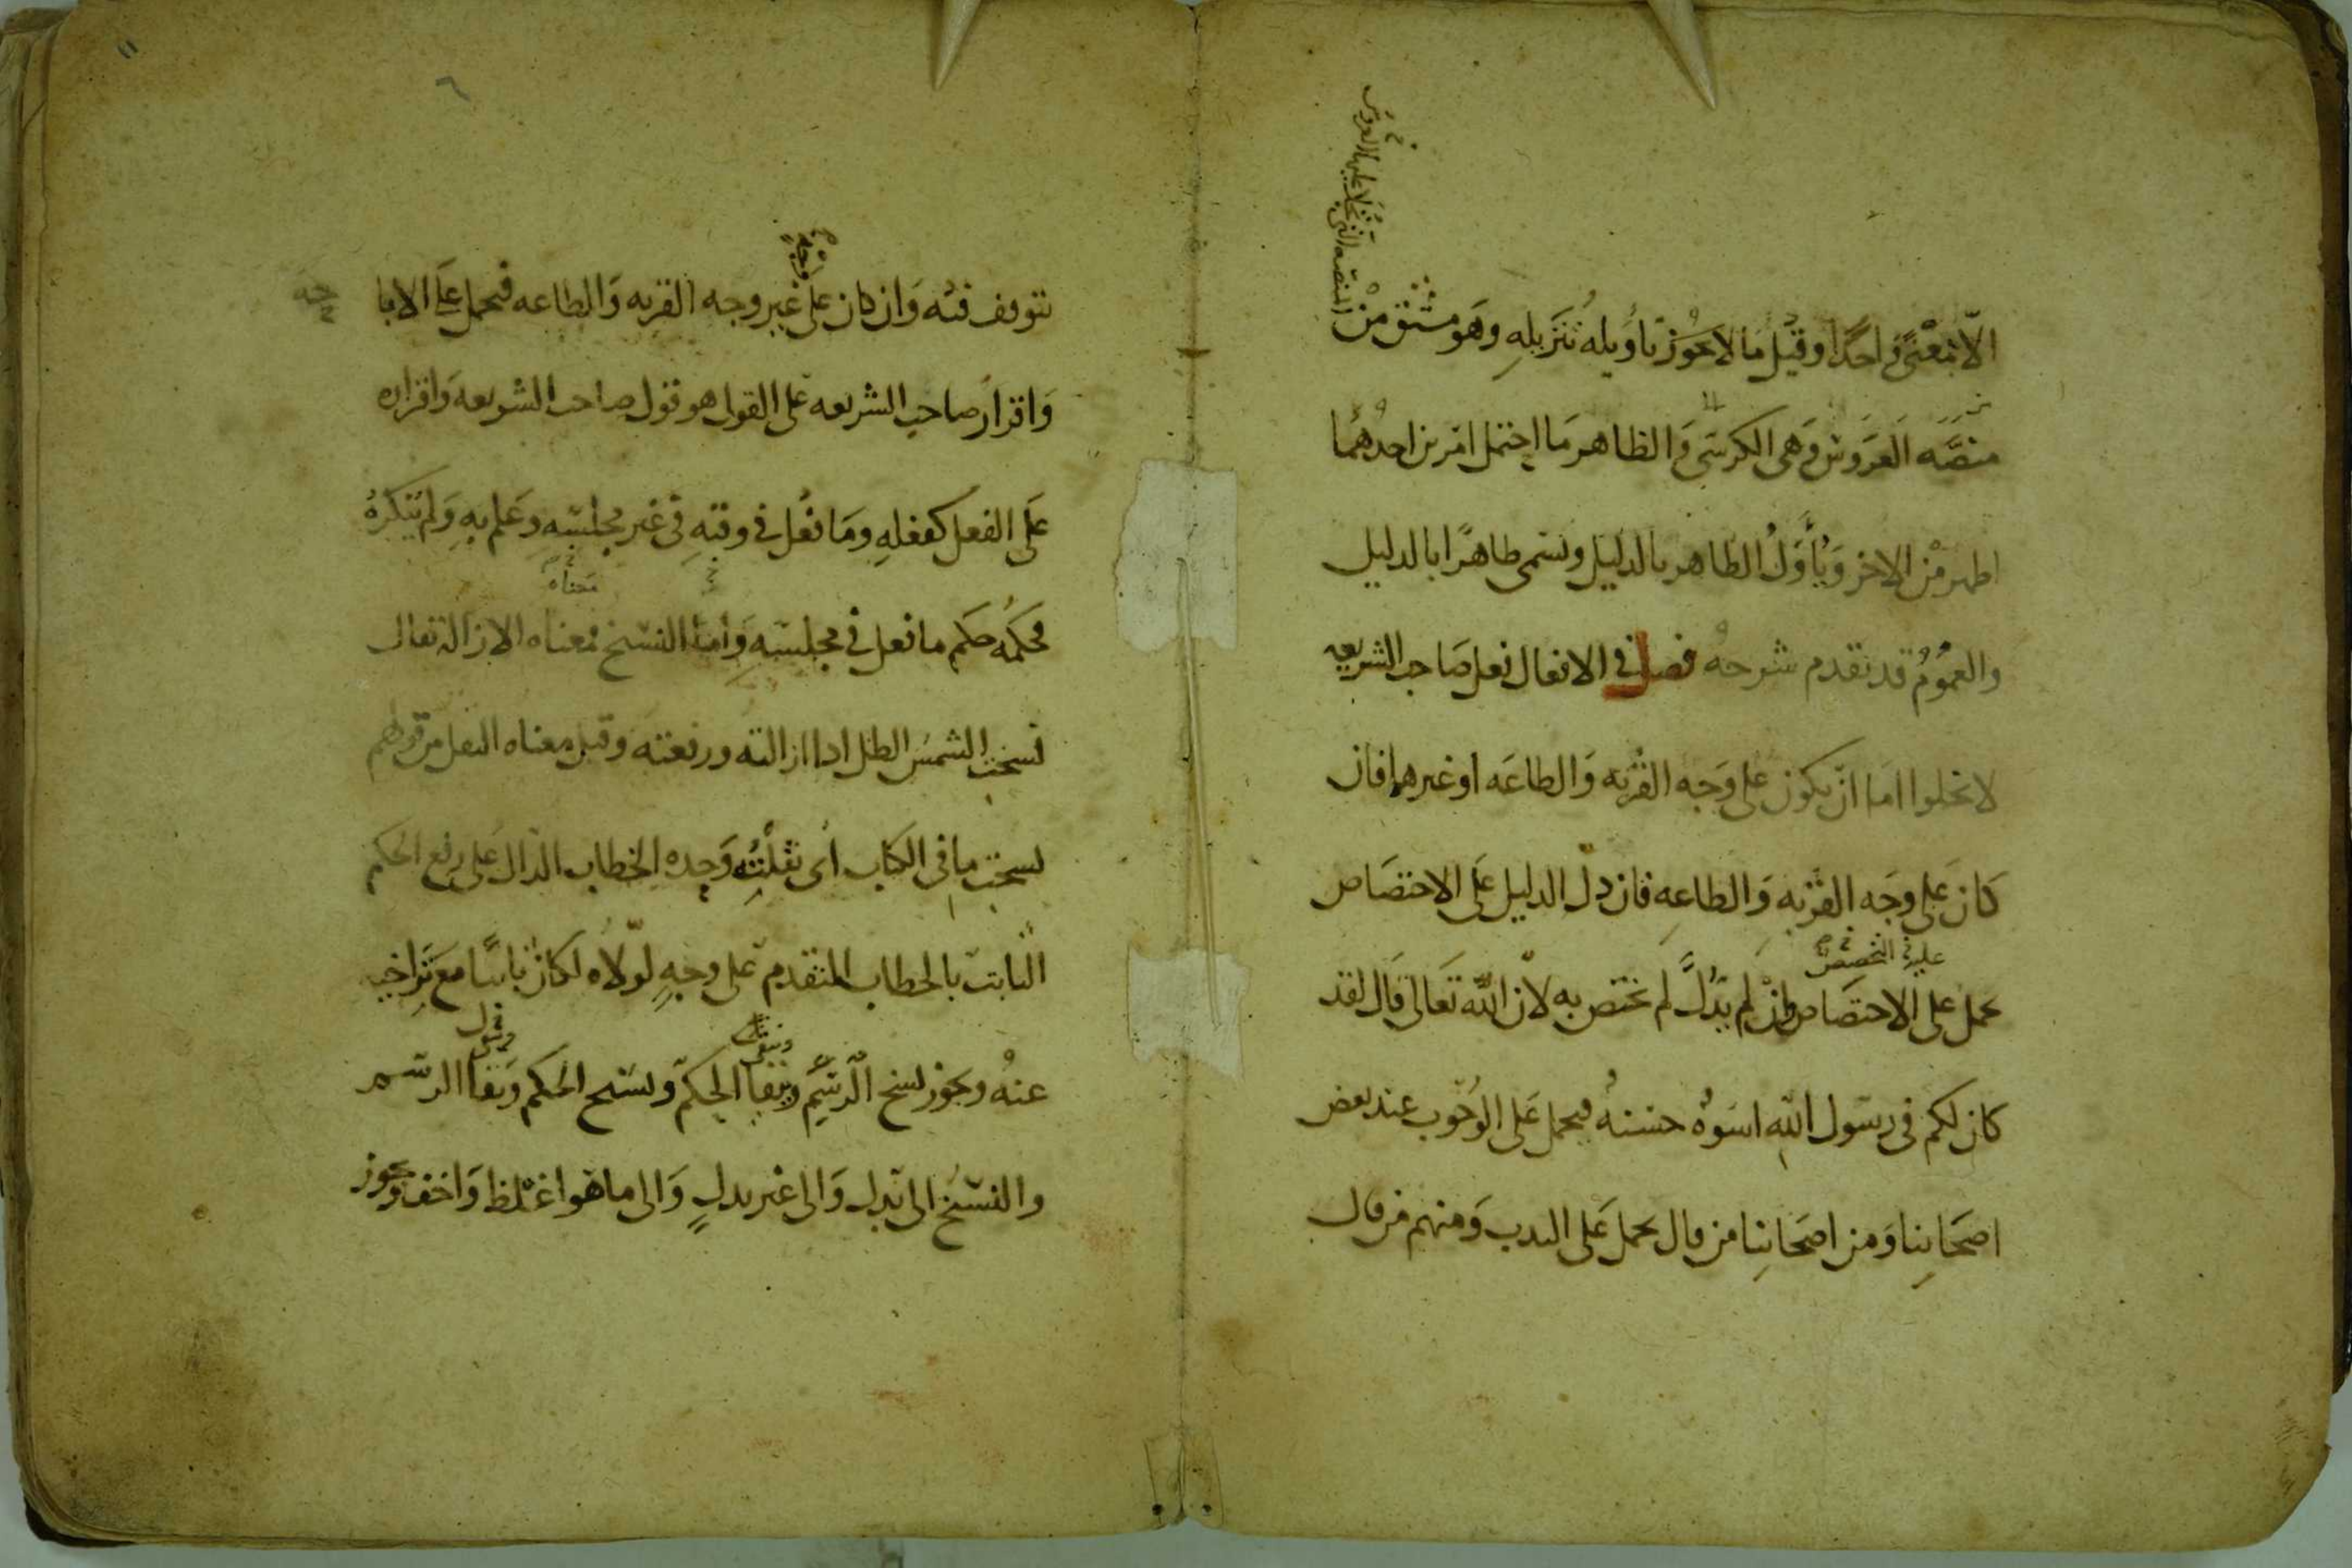 الا معنى واحدا وقيل ما لا يجوز تاويله تنزيله وهو مشتق من
المنصه التى تجلا عليها العروس
منصه العروس وهى الكرسى والظاهر ما احتمل امرين احدهما
اظهر من الاخر ويأول الظاهر بالدليل ويسمى ظاهرا بالدليل
والعموم قد تقدم شرحه فصل فى الافعال فعل صاحب الشريعه
لا يخلوا اما ان يكون على وجه القربه والطاعه او غيرهما فان
كان على وجه القربه والطاعه فان دل الدليل على الاختصاص
يحمل على الاختصاص وان لم يدل لم يختص به لان الله تعالى قال لقد
كان لكم فى رسول الله اسوه حسنه فيحمل على الوجوب عند بعض
اصحابنا ومن اصحابنا من قال يحمل على الندب ومنهم من قال
يتوقف فيه وان كان على غير وجه القربه والطاعه فيحمل على الابا
حه
واقرار صاحب الشريعه على القول هو قول صاحب الشريعه واقراره
على الفعل كفعله وما فعل فى وقته فى غير مجلسه وعلم به ولم ينكره
فحكمه حكم ما فعل فى مجلسه واما النسخ فمعناه الازالة يقال
نسخت الشمس الظل اذا ازالته ورفعته وقيل معناه النقل من قولهم
نسخت ما فى الكتاب اى نقلته وحده الخطاب الدال على رفع الحكم
الثابت بالخطاب المتقدم على وجه لولاه لكان ثابتا مع تراخيه
عنه ويجوز نسخ الرسم وبقا الحكم ونسخ الحكم وبقا الرسم
والنسخ الى بدل والى غير بدل والى ما هو اغلظ واخف ويجوز